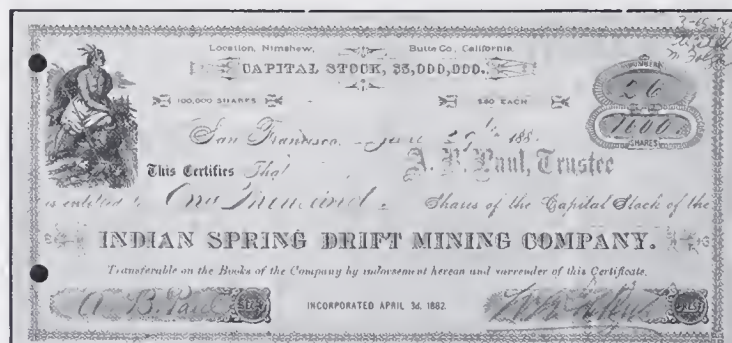 Location, Nimshew, Butte Co., California.
CAPITAL STOCK, $5,000,000.
NUMBER
100,000 SHARES $50 EACH
26
1000
SHARES
San Francisco, June 29th 188
This Certifies That A. B. Paul, Trustee
is entitled to One Thousand Shares of the Capital Stock of the
INDIAN SPRING DRIFT MINING COMPANY.
Transferable on the Books of the Company by indorsement hereon and surrender of this Certificate.
A. B. Paul SECY INCORPORATED APRIL 3d, 1882. PREST